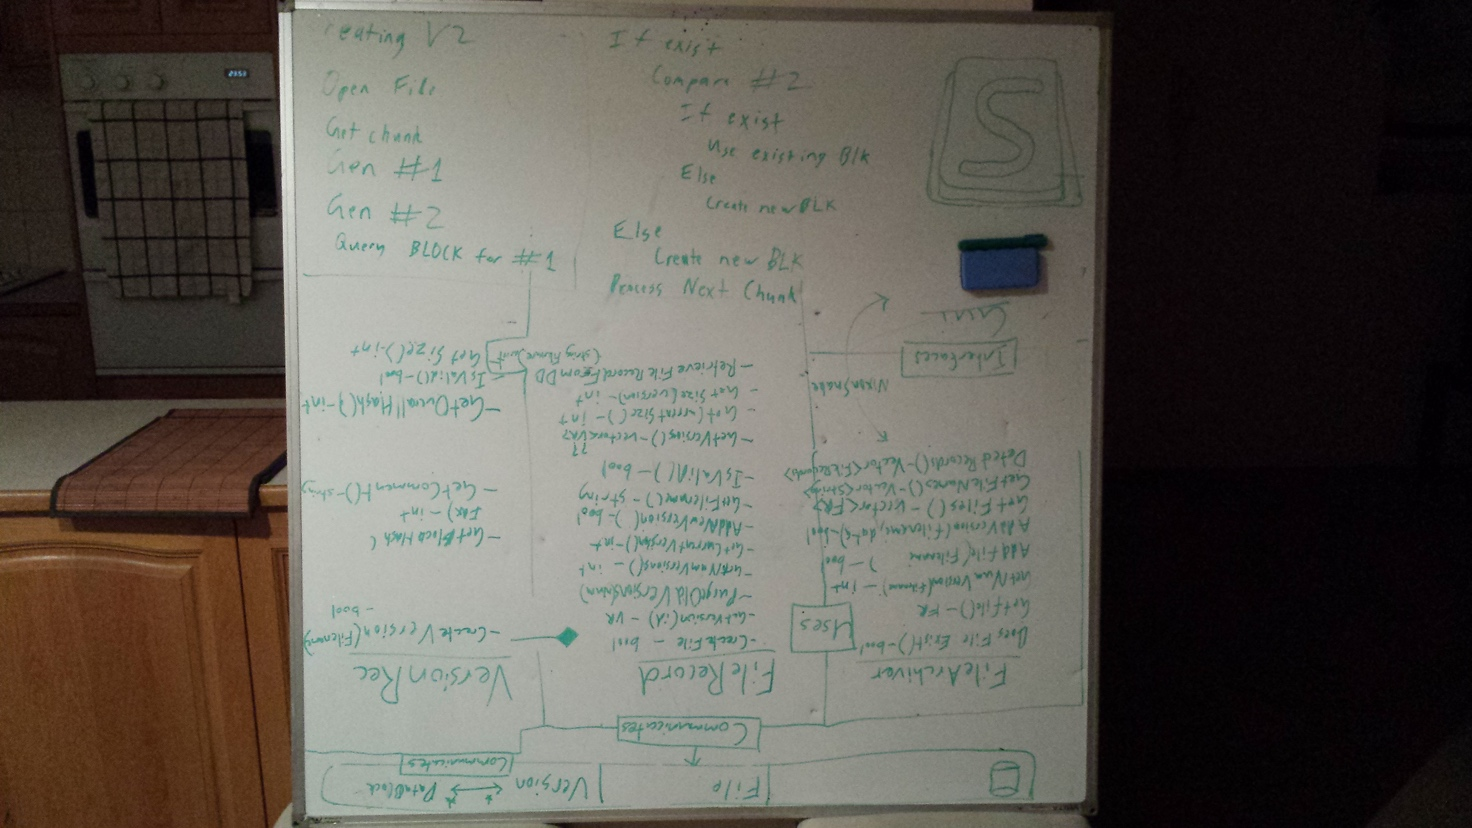 reating V2
Open File
Get chunk
Gen #1
Gen #2
Query BLOCK for #1
If exist
Compare #2
If exist
Use existing Blk
Else
Create new BLK
Else
Create new BLK
Process Next Chunk
S
23:53
File
Version
DataBlock
Communicates
Communicates
FileArchiver
Does File Exist()-bool
GetFile()-FR
GetNumVersion(Filename)-int
Add File(Filename )-bool
AddVersion(filename, data&)-bool
Get Files()-Vector<FR>
GetFileNames()-Vector<String>
Uses
Interfaces
FileRecord
-CreateFile - bool
-GetVersion(id) - VR
-PurgeOldVersions(num)
-GetNumVersions() - int
-GetCurrentVersion()-int
AddNewVersion( )-bool
-GetFilename()-string
-IsValid() - bool
??
-GetVersion()-vector<VR>
-GetCurrentSize()-int
-GetSize(version)-int
-RetrieveFileRecordFromDD
VersionRec
-CreateVersion(Filename)
- bool
-GetBlockHash(
-int
-GetComment()-string
-GetOverallHash()-int
IsValid()-bool
Get Size()-int